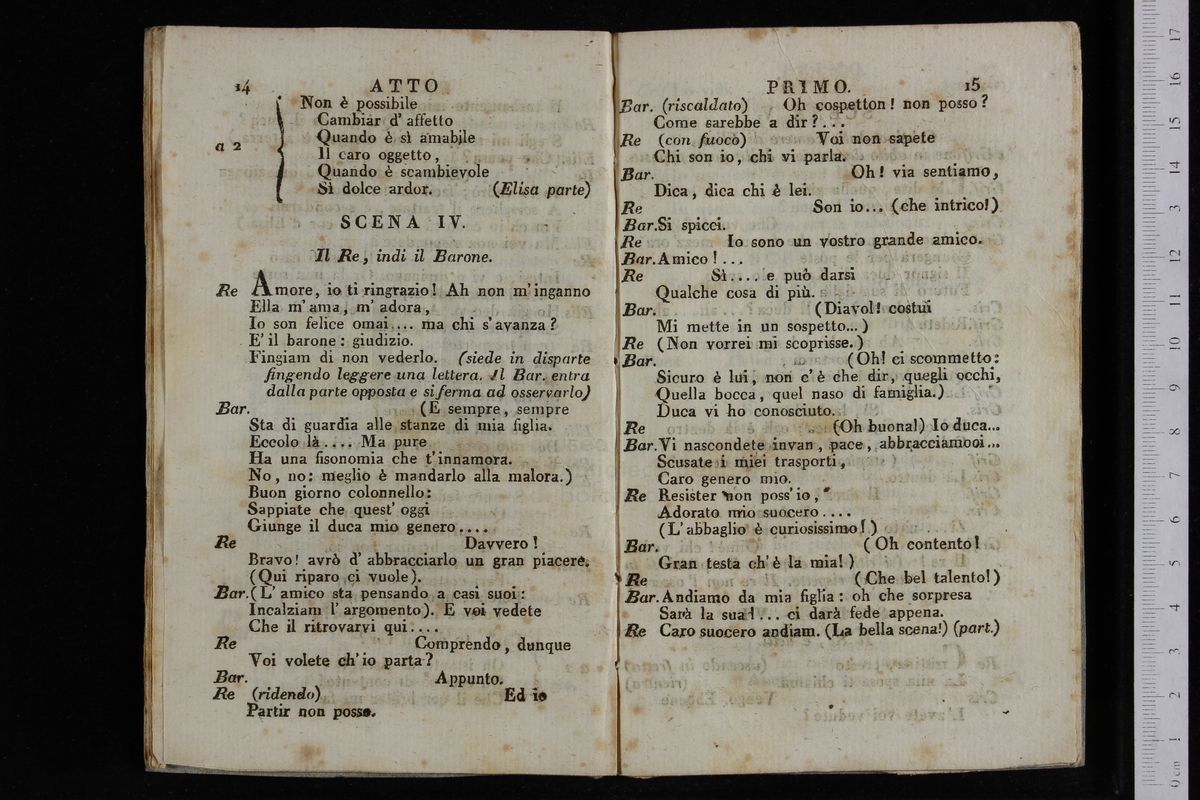 14 ATTO
Non è possibile
Cambiar d' affetto
Quando è sì amabile
a 2 Il caro oggetto,
Quando è scambievole
Sì dolce ardor. (Elisa parte)
SCENA IV.
Il Re, indi il Barone.
Re Amore, io ti ringrazio! Ah non m' inganno
Ella m' ama, m' adora,
Io son felice omai.... ma chi s' avanza?
E' il barone: giudizio.
Fingiam di non vederlo. (siede in disparte
fingendo leggere una lettera. Il Bar. entra
dalla parte opposta e si ferma ad osservarlo)
Bar. (E sempre, sempre
Sta di guardia alle stanze di mia figlia.
Eccolo là.... Ma pure
Ha una fisonomia che t' innamora.
No, no: meglio è mandarlo alla malora.)
Buon giorno colonnello:
Sappiate che quest' oggi
Giunge il duca mio genero....
Re Davvero!
Bravo! avrò d' abbracciarlo un gran piacere.
(Qui riparo ci vuole).
Bar. (L' amico sta pensando a casi suoi:
Incalziam l' argomento). E voi vedete
Che il ritrovarvi qui....
Re Comprendo, dunque
Voi volete ch' io parta?
Bar. Appunto.
Re (ridendo) Ed io
Partir non posso.
PRIMO. 15
Bar. (riscaldato) Oh cospetton! non posso?
Come sarebbe a dir?...
Re (con fuoco) Voi non sapete
Chi son io, chi vi parla.
Bar. Oh! via sentiamo,
Dica, dica chi è lei.
Re Son io... (che intrico!)
Bar. Si spicci.
Re Io sono un vostro grande amico.
Bar. Amico!...
Re Sì.... e può darsi
Qualche cosa di più.
Bar. (Diavol! costui
Mi mette in un sospetto...)
Re (Non vorrei mi scoprisse.)
Bar. (Oh! ci scommetto:
Sicuro è lui, non c' è che dir, quegli occhi,
Quella bocca, quel naso di famiglia.)
Duca vi ho conosciuto.
Re (Oh buona!) Io duca...
Bar. Vi nascondete invan, pace, abbracciamoci...
Scusate i miei trasporti,
Caro genero mio.
Re Resister non poss' io,
Adorato mio suocero....
(L' abbaglio è curiosissimo!)
Bar. (Oh contento!
Gran testa ch' è la mia!)
Re (Che bel talento!)
Bar. Andiamo da mia figlia: oh che sorpresa
Sarà la sua!... ci darà fede appena.
Re Caro suocero andiam. (La bella scena!) (part.)
0 cm 1 2 3 4 5 6 7 8 9 10 11 12 13 14 15 16 17